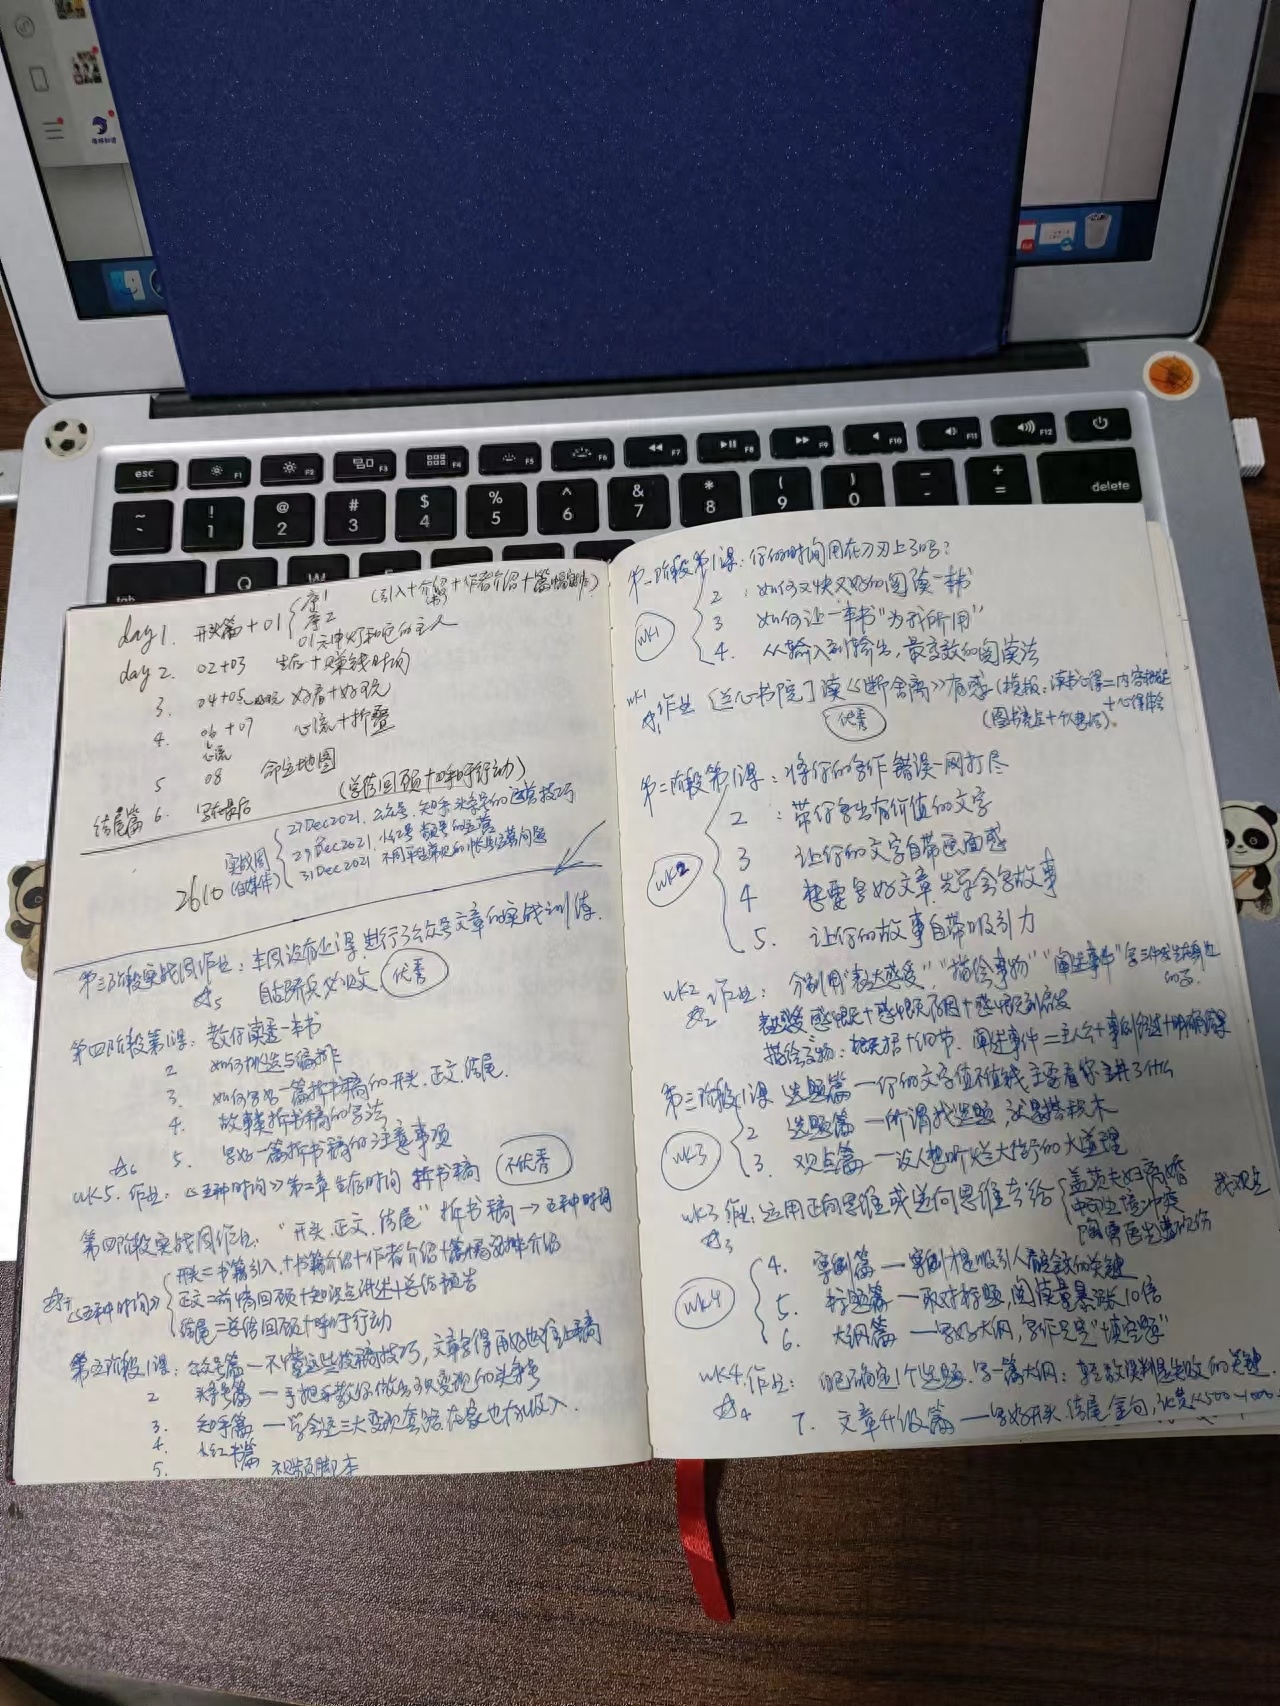 esc F1 F2 F3 F4 F5 F6 F7 F8 F9 F10 F11 F12
~ ! @ # $ % ^ & * ( ) _ +
` 1 2 3 4 5 6 7 8 9 0 - = delete
tab Q W
day 1. 开头篇 + 01 序1 (引入+介绍+作者介绍+篇幅安排)
序2
01 天中灯和它的主人
day 2. 02+03 生存+赚钱时间
3. 04+05 好看+好玩
4. 06+07 心流+折叠
心流
5 08 命运地图
结尾篇 6. 写在最后 (总结回顾+呼吁行动)
实战周 27 Dec 2021. 公众号、知乎、头条号的运营技巧
2610 (自媒体) 29 Dec 2021. 小红书、视频号的运营
31 Dec 2021. 不同平台常见的账号运营问题
第三阶段实战周作业:本周没有上课,进行了公众号文章的实战训练.
☆5 自古骄兵必败. 优秀
第四阶段第1课:教你读透一本书
2 如何挑选与编排
3. 如何写出一篇拆书稿的开头.正文.结尾.
4. 故事类拆书稿的写法
☆6 5. 写好一篇拆书稿的注意事项
WK5. 作业:《五种时间》第二章生存时间 拆书稿 不优秀
第四阶段实战周作业:“开头.正文.结尾”拆书稿→五种时间
开头=书籍引入+书籍介绍+作者介绍+篇幅安排介绍
☆7《五种时间》 正文=前情回顾+知识点讲述+总结预告
结尾=总结回顾+呼吁行动
第五阶段1课:公众号篇—不懂这些投稿技巧,文章写得再好也难上稿
2 头条号篇—手把手教你做出可以变现的头条号
3. 知乎篇—学会这三大变现套路,在家也有收入.
4. 小红书篇
5. 视频脚本
第一阶段第1课:你的时间用在刀刃上了吗?
2 :如何又快又好的阅读一本书
WK1 3 如何让一本书“为我所用”
4. 从输入到输出,最高效的阅读法
WK1
☆1 作业 [兰心书院] 读《断舍离》有感(模板:读书心得=内容概括+心得体会
优秀 (图书亮点+个人总结)。
第二阶段第1课:将你的写作错误一网打尽
2 :带你写出有价值的文字
3 让你的文字自带画面感
WK2 4 想要写好文章,先学会写故事
5. 让你的故事自带吸引力
WK2 作业: 分别用“表达感受”,“描绘事物”“阐述事件”写三件发生在身边的事.
☆2 表达感受:感慨+感慨原因+感慨到启发
描绘事物:概括语+细节. 阐述事件=主人公+事例经过+明确结果
第三阶段1课 选题篇—你的文字值不值钱,主要看字主讲了什么
2 选题篇—所谓找选题,就是搭积木
WK3 3. 观点篇—没人想听烂大街的大道理
WK3 作业:运用正向思维或逆向思维去给 盖茨夫妇离婚 找观点
☆3 中印边境冲突
陶勇医生
4. 案例篇—案例才是吸引人看全文的关键
WK4 5. 标题篇—取对标题,阅读量暴涨10倍
6. 大纲篇—写好大纲,写作只是“填空题”
WK4. 作业: 自己确定1个选题.写一篇大纲:轻敌误判是失败的关键.
☆4 7. 文章升级篇—写好开头.结尾.金句,